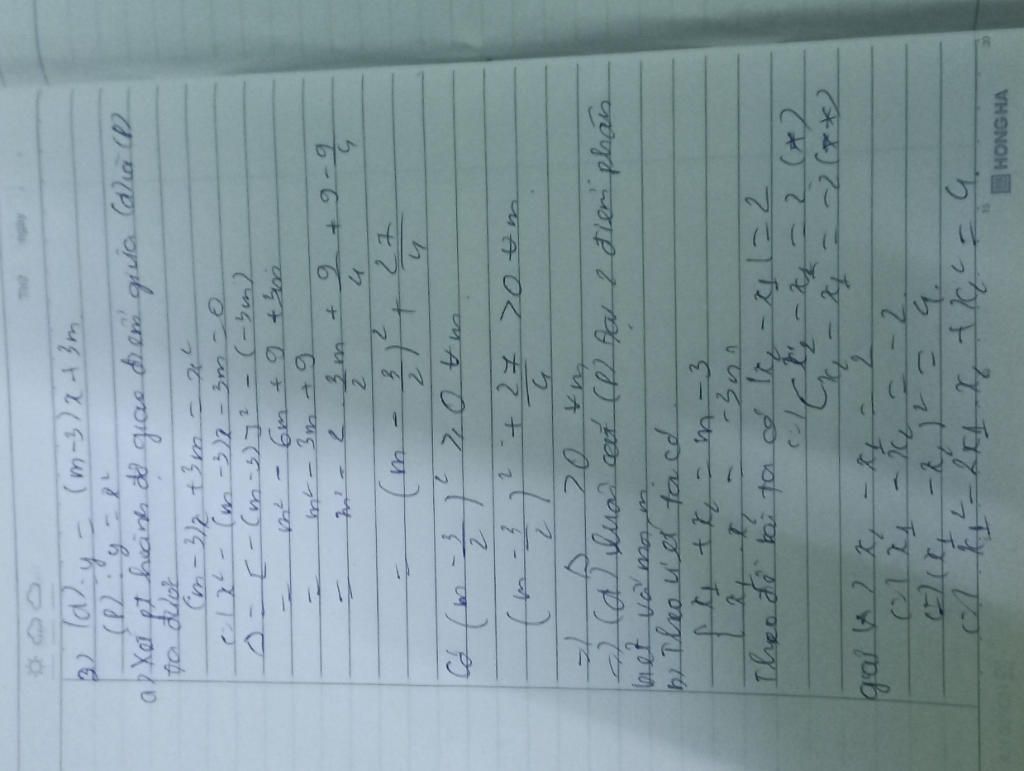 Thứ Ngày
3) (d): y = (m-3)x + 3m
(P): y = x²
a) Xét pt hoành độ giao điểm giữa (d) và (P)
ta được
(m-3)x + 3m = x²
(=) x² - (m-3)x - 3m = 0
Δ = [-(m-3)]² - (-3m)
= m² - 6m + 9 + 3m
= m² - 3m + 9
= m² - 2 3/2 m + 9/4 + 9 - 9/4
= (m - 3/2)² + 27/4
Có (m - 3/2)² ≥ 0 ∀m
(m - 3/2)² + 27/4 > 0 ∀m
=) Δ > 0 ∀m
=) (d) luôn cắt (P) tại 2 điểm phân
biệt với mọi m
b) Theo viet ta có
{ x₁ + x₂ = m - 3
x₁ x₂ = -3m
Theo đề bài ta có |x₂ - x₁| = 2
(=) ( x₂ - x₁ = 2 (*)
x₂ - x₁ = -2 (**)
giải (*) x₂ - x₁ = 2
(=) x₁ - x₂ = -2
(=) (x₁ - x₂)² = 4
(=) x₁² - 2x₁ x₂ + x₂² = 4
HONG HA